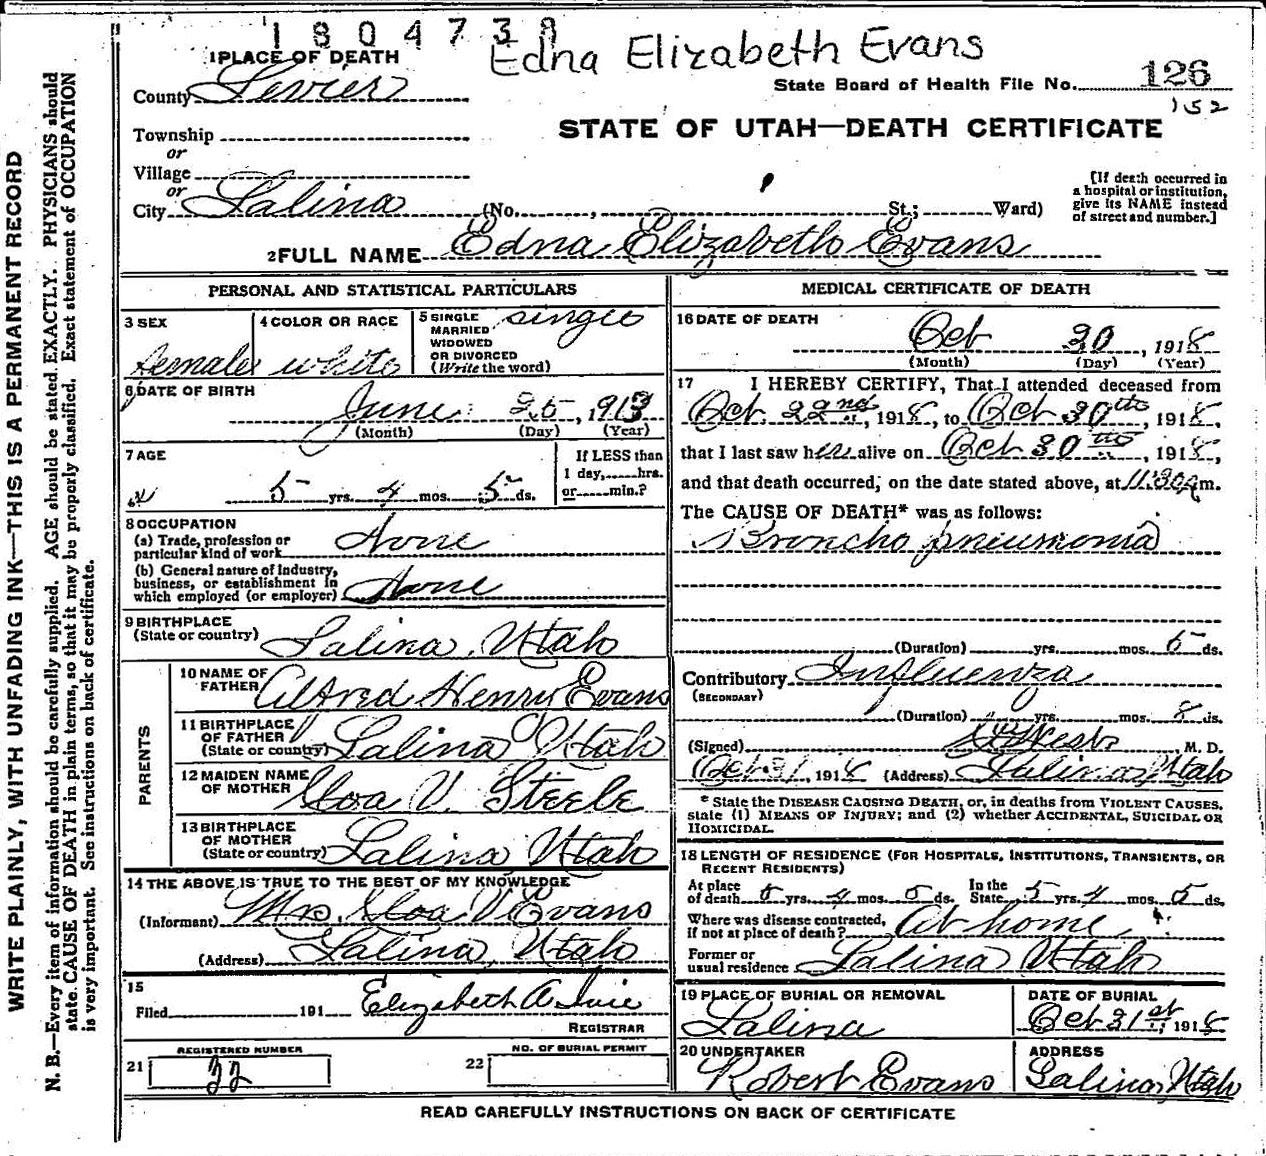 1804738
Edna Elizabeth Evans
1 PLACE OF DEATH
County Sevier
State Board of Health File No. 126
152
STATE OF UTAH—DEATH CERTIFICATE
Township
or
Village
or
City Salina (No. , St.; Ward)
[If death occurred in
a hospital or institution,
give its NAME instead
of street and number.]
2 FULL NAME Edna Elizabeth Evans
PERSONAL AND STATISTICAL PARTICULARS
3 SEX
Female
4 COLOR OR RACE
white
5 SINGLE
MARRIED
WIDOWED
OR DIVORCED
(Write the word)
single
6 DATE OF BIRTH
June 25, 1913
(Month) (Day) (Year)
7 AGE
5 yrs. 4 mos. 5 ds.
If LESS than
1 day, hrs.
or min.?
8 OCCUPATION
(a) Trade, profession or
particular kind of work None
(b) General nature of Industry,
business, or establishment in
which employed (or employer) None
9 BIRTHPLACE
(State or country) Salina, Utah
PARENTS
10 NAME OF
FATHER Alfred Henry Evans
11 BIRTHPLACE
OF FATHER
(State or country) Salina Utah
12 MAIDEN NAME
OF MOTHER Loa V. Steele
13 BIRTHPLACE
OF MOTHER
(State or country) Salina Utah
14 THE ABOVE IS TRUE TO THE BEST OF MY KNOWLEDGE
(Informant) Mrs. Loa V Evans
(Address) Salina, Utah
15
Filed 191 Elizabeth A
REGISTRAR
21 REGISTERED NUMBER
22 NO. OF BURIAL PERMIT
MEDICAL CERTIFICATE OF DEATH
16 DATE OF DEATH
Oct 30, 1918
(Month) (Day) (Year)
17 I HEREBY CERTIFY, That I attended deceased from
Oct. 22nd, 1918, to Oct 30th, 1918,
that I last saw her alive on Oct 30th, 1918,
and that death occurred, on the date stated above, at 11:30 m.
The CAUSE OF DEATH* was as follows:
Broncho pneumonia
(Duration) yrs. mos. 5 ds.
Contributory Influenza
(SECONDARY)
(Duration) yrs. mos. 8 ds.
(Signed) West, M. D.
Oct 31, 1918 (Address) Salina, Utah
* State the DISEASE CAUSING DEATH, or, in deaths from VIOLENT CAUSES,
state (1) MEANS OF INJURY; and (2) whether ACCIDENTAL, SUICIDAL OR
HOMICIDAL.
18 LENGTH OF RESIDENCE (FOR HOSPITALS, INSTITUTIONS, TRANSIENTS, OR
RECENT RESIDENTS)
At place
of death 5 yrs. 4 mos. 5 ds. In the
State 5 yrs. 4 mos. 5 ds.
Where was disease contracted,
if not at place of death? At home
Former or
usual residence Salina Utah
19 PLACE OF BURIAL OR REMOVAL
Salina
DATE OF BURIAL
Oct 31st, 1918
20 UNDERTAKER
Robert Evans
ADDRESS
Salina, Utah
READ CAREFULLY INSTRUCTIONS ON BACK OF CERTIFICATE
WRITE PLAINLY, WITH UNFADING INK—THIS IS A PERMANENT RECORD
N. B.—Every item of information should be carefully supplied. AGE should be stated EXACTLY. PHYSICIANS should
state CAUSE OF DEATH in plain terms, so that it may be properly classified. Exact statement of OCCUPATION
is very important. See instructions on back of certificate.